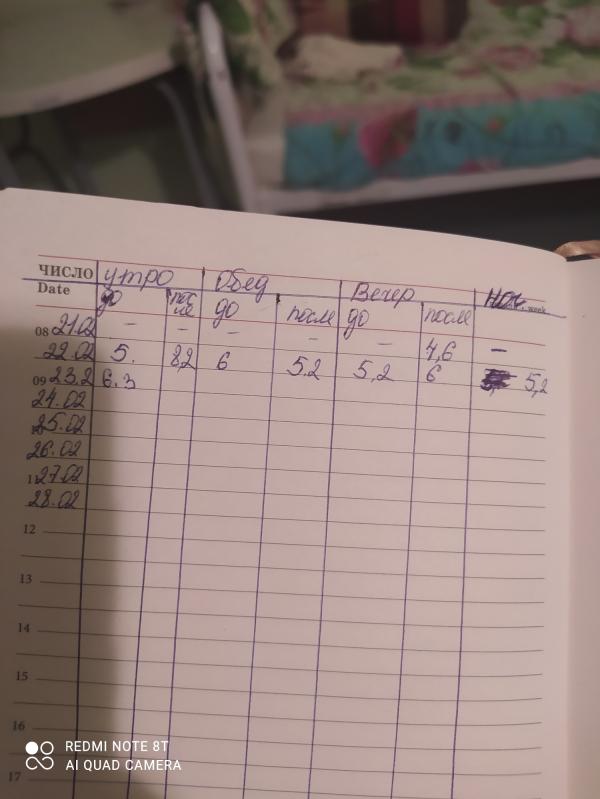 ЧИСЛО утро Обед Вечер Ноч
Date до после до после до после week
08 21.02 - - - - - 4,6 -
22.02 5. 8,2 6 5.2 5,2 6 5,2
09 23.2 6.3
24.02
25.02
26.02
11 27.02
28.02
12
13
14
15
16
17
REDMI NOTE 8T
AI QUAD CAMERA